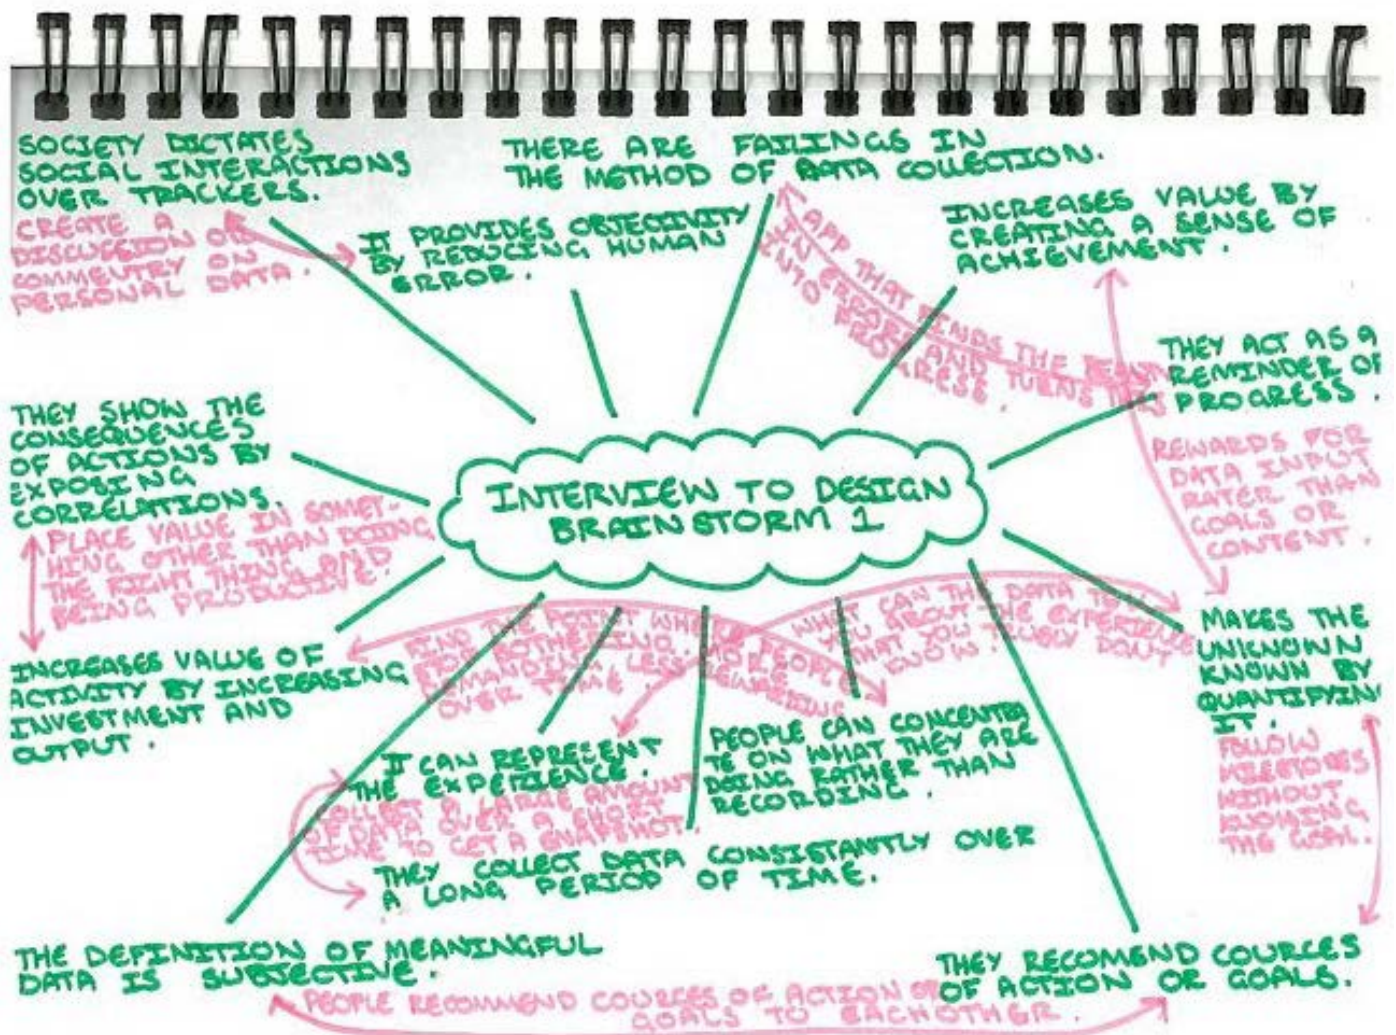 SOCIETY DICTATES
SOCIAL INTERACTIONS
OVER TRACKERS.
CREATE A
DISCUSSION OR
COMMENTRY ON
PERSONAL DATA.
IT PROVIDES OBJECTIVITY
BY REDUCING HUMAN
ERROR.
THERE ARE FAILINGS IN
THE METHOD OF DATA COLLECTION.
APP THAT FINDS THE
IN ERRORS AND TURNS
INTO PROGRESS.
INCREASES VALUE BY
CREATING A SENSE OF
ACHIEVEMENT.
THEY ACT AS A
REMINDER OF
PROGRESS.
REWARDS FOR
DATA INPUT
RATER THAN
GOALS OR
CONTENT.
THEY SHOW THE
CONSEQUENCES
OF ACTIONS BY
EXPOSING
CORRELATIONS.
PLACE VALUE IN SOMET-
HING OTHER THAN DOING
THE RIGHT THING AND
BEING PRODUCTIVE.
INTERVIEW TO DESIGN
BRAINSTORM 1
INCREASES VALUE OF
ACTIVITY BY INCREASING
INVESTMENT AND
OUTPUT.
FIND THE POINT WHERE PEOPLE
STOP BOTHERING. MORE
DEMANDING, LESS REWARDING
OVER TIME.
WHAT CAN THE DATA TELL
YOU ABOUT THE EXPERIENCE
THAT YOU DONT
KNOW.
MAKES THE
UNKNOWN
KNOWN BY
QUANTIFYIN
IT.
FOLLOW
MILESTONES
WITHOUT
KNOWING
THE GOAL.
IT CAN REPRESENT
THE EXPERIENCE.
COLLECT A LARGE AMOUNT
OF DATA OVER A SHORT
TIME TO GET A SNAPSHOT.
PEOPLE CAN CONCENTRA
TE ON WHAT THEY ARE
DOING RATHER THAN
RECORDING.
THEY COLLECT DATA CONSISTANTLY OVER
A LONG PERIOD OF TIME.
THE DEFINITION OF MEANINGFUL
DATA IS SUBJECTIVE.
THEY RECOMEND COURCES
OF ACTION OR GOALS.
PEOPLE RECOMMEND COURCES OF ACTION OR
GOALS TO EACHOTHER.